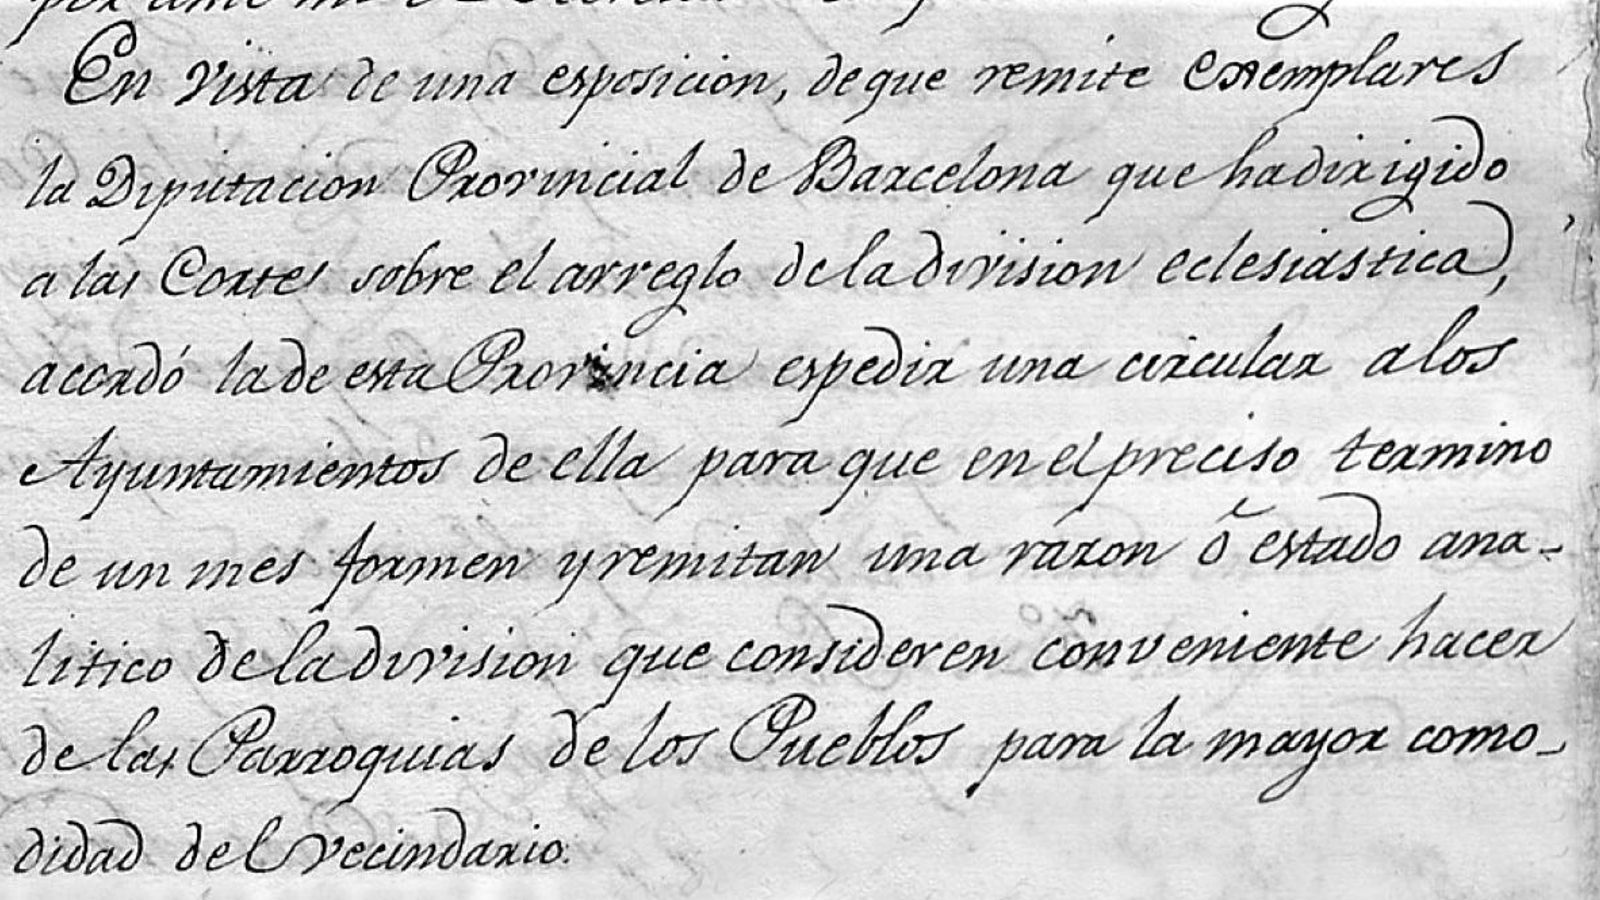 En vista de una esposicion, de que remite exemplares
la Diputacion Provincial de Barcelona que ha dirigido
a las Cortes sobre el arreglo de la division eclesiastica,
acordó la de esta Provincia espedir una circular a los
Ayuntamientos de ella para que en el preciso termino
de un mes formen y remitan una razon ó estado ana-
litico de la division que consideren conveniente hacer
de las Parroquias de los Pueblos para la mayor como-
didad del vecindario.